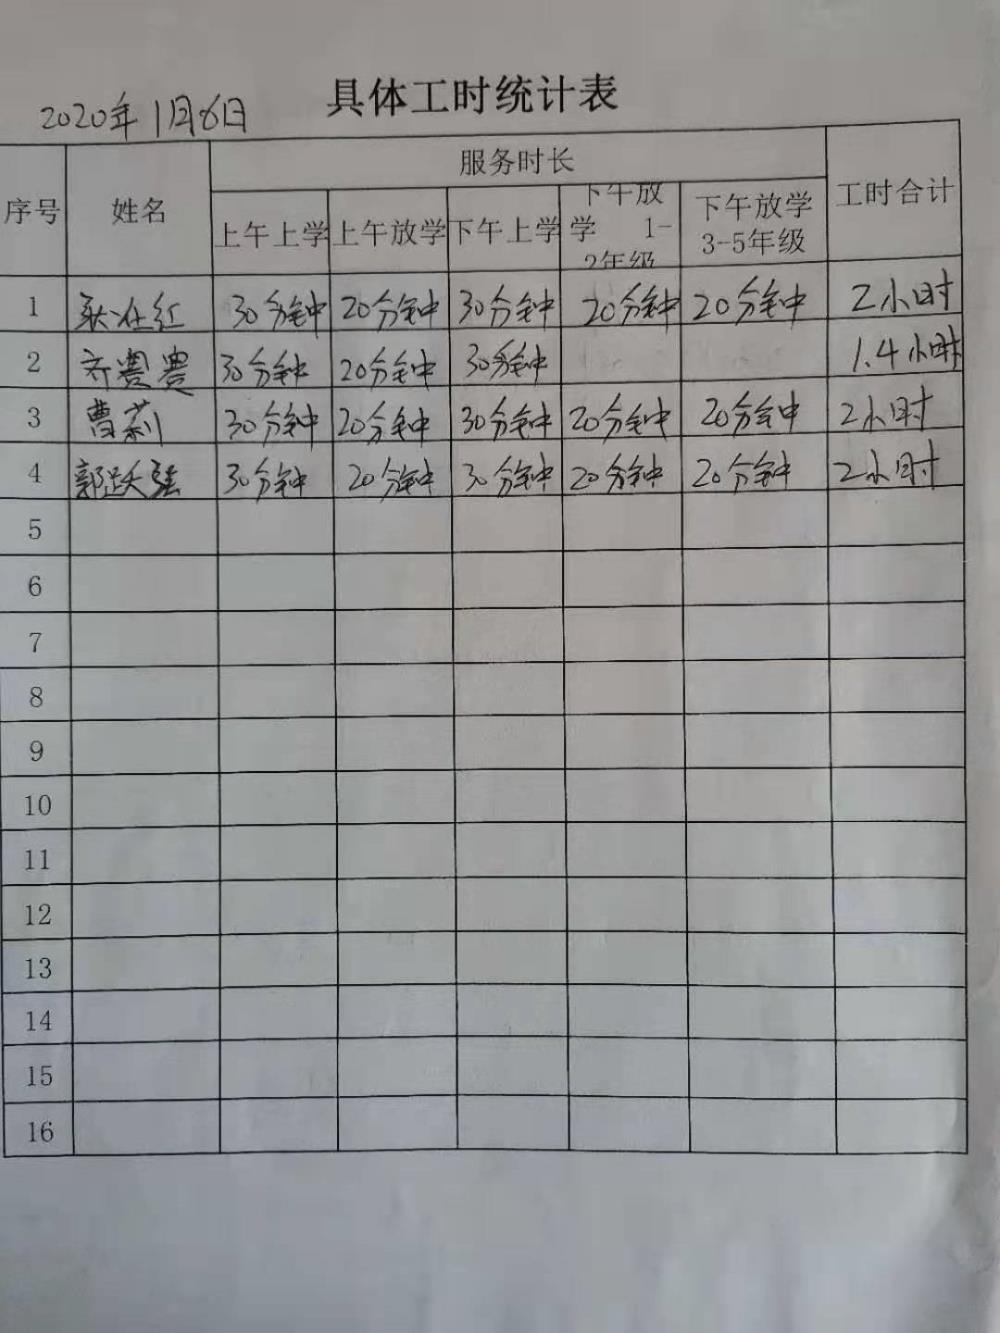 2020年1月6日
具体工时统计表
序号 姓名 服务时长 工时合计
上午上学 上午放学 下午上学 下午放学 1-2年级 下午放学 3-5年级
1 30分钟 20分钟 30分钟 20分钟 20分钟 2小时
2 齐赛赛 30分钟 20分钟 30分钟 1.4小时
3 曹莉 30分钟 20分钟 30分钟 20分钟 20分钟 2小时
4 郭跃强 30分钟 20分钟 30分钟 20分钟 20分钟 2小时
5
6
7
8
9
10
11
12
13
14
15
16